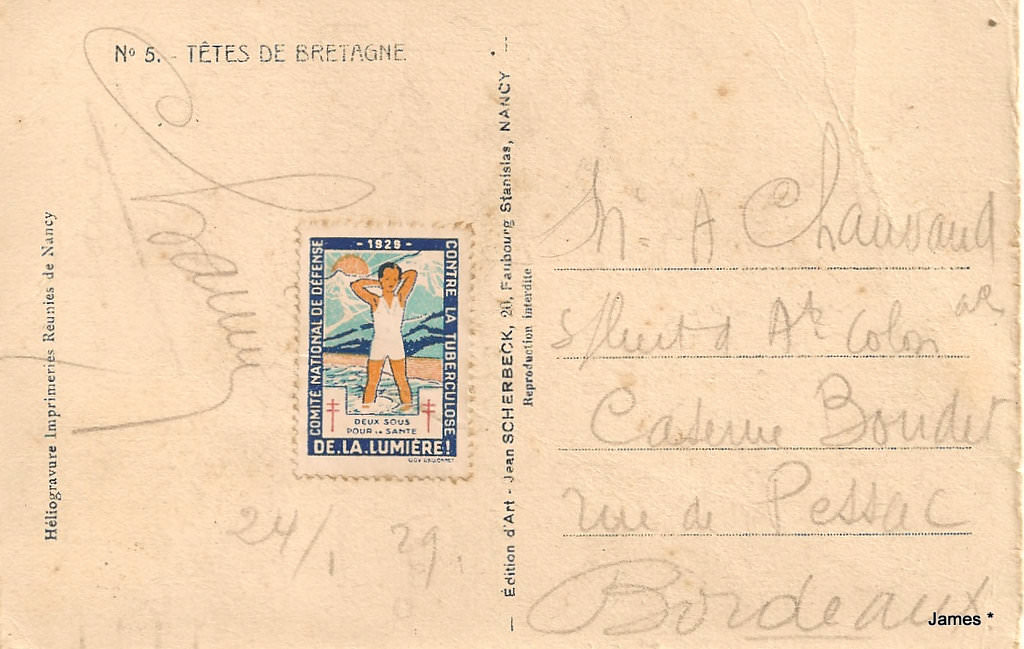 Nº 5. - TÊTES DE BRETAGNE
Héliogravure Imprimeries Réunies de Nancy
- 1929 -
COMITÉ NATIONAL DE DÉFENSE
CONTRE LA TUBERCULOSE
DEUX SOUS
POUR LA SANTÉ
DE.LA.LUMIÈRE!
24/1 29.
Édition d'Art - Jean SCHERBECK, 20, Faubourg Stanislas, NANCY
Reproduction interdite
M= A Chaussaud
d'Art Colon ale
Caserne Boudet
rue de Pessac
Bordeaux
James *